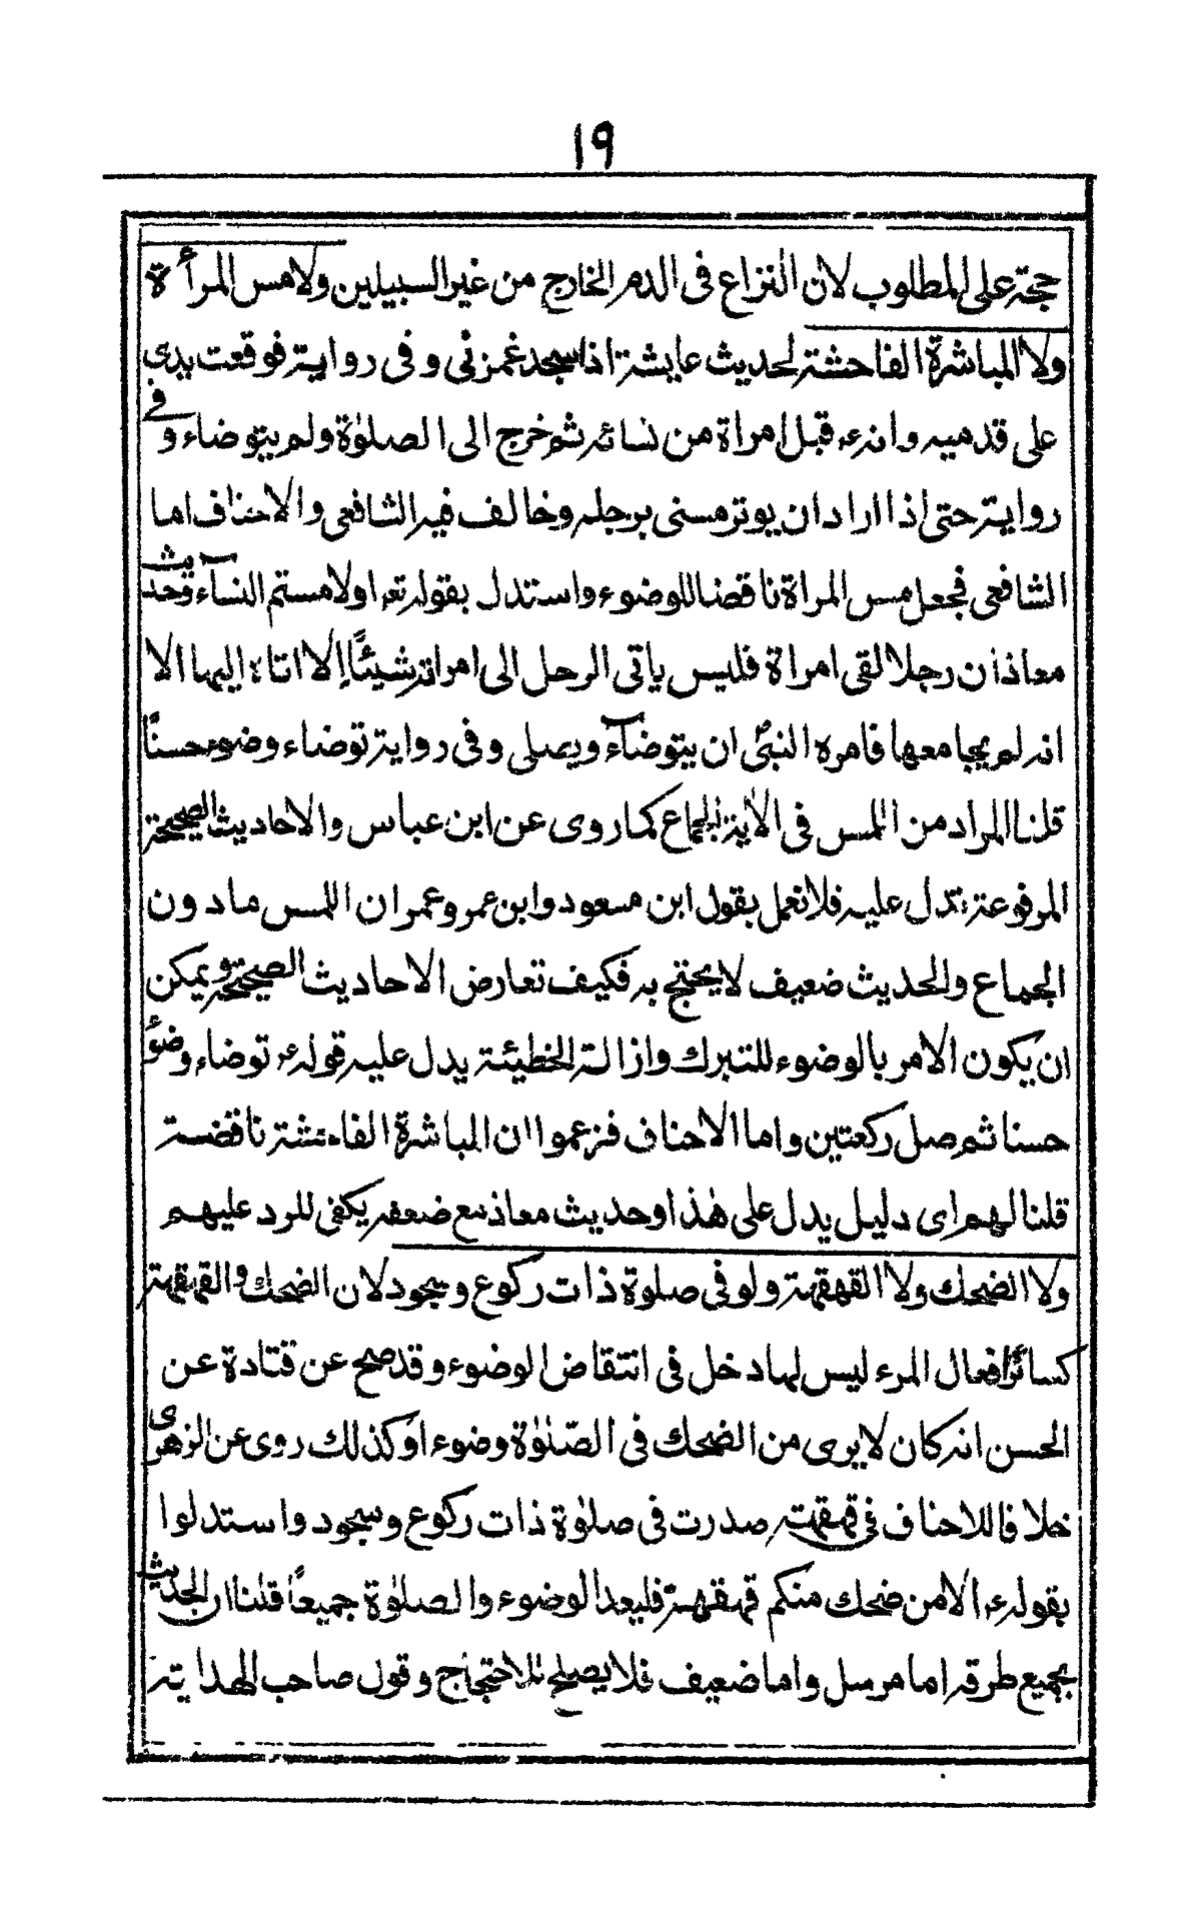 ١٩
حجة على المطلوب لان النزاع فى الدم الخارج من غير السبيلين ولا مس المرأة
ولا المباشرة الفاحشة لحديث عايشة اذا سجد غمزنى وفى رواية فوقعت يدى
على قدميه وانهء قبل امراة من نسائه ثم خرج الى الصلوٰة ولم يتوضاء وفى
رواية حتى اذا اراد ان يوتر مسنى برجله وخالف فيه الشافعى والاحناف اما
الشافعى فجعل مس المراة ناقضا للوضوء واستدل بقوله تعه اولامستم النسآء وحديث
معاذ ان رجلا لقى امراة فليس ياتى الرجل الى امراته شيئًا إلا اتاه اليها الا
انه لم يجامعها فامره النبىؐ ان يتوضآء ويصلى وفى رواية توضاء وضوء حسنًا
قلنا المراد من اللمس فى الاٰية الجماع كما روى عن ابن عباس والاحاديث الصحيحة
المرفوعة تدل عليه فلا نعمل بقول ابن مسعود وابن عمر وعمر ان اللمس ما دون
الجماع والحديث ضعيف لا يحتج به فكيف تعارض الاحاديث الصحيحة ويمكن
ان يكون الامر بالوضوء للتبرك وازالة الخطيئة يدل عليه قولهء توضاء وضوءً
حسنا ثم صل ركعتين واما الاحناف فزعموا ان المباشرة الفاحشة ناقضة
قلنا لهم اى دليل يدل على هٰذا وحديث معاذ مع ضعفه يكفى للرد عليهم
ولا الضحك ولا القهقهة ولو فى صلوة ذات ركوع وسجود لان الضحك والقهقهة
كسائر افعال المرء ليس لها دخل فى انتقاض الوضوء وقد صح عن قتادة عن
الحسن انه كان لا يرى من الضحك فى الصّلوٰة وضوء اوكذلك روى عن الزهرى
خلافا للاحناف فى قهقهة صدرت فى صلوٰة ذات ركوع وسجود واستدلوا
بقولهء الا من ضحك منكم قهقهة فليعد الوضوء والصلوٰة جميعاً قلنا ان الحديث
بجميع طرقه اما مرسل واما ضعيف فلا يصلح للاحتجاج وقول صاحب الهداية